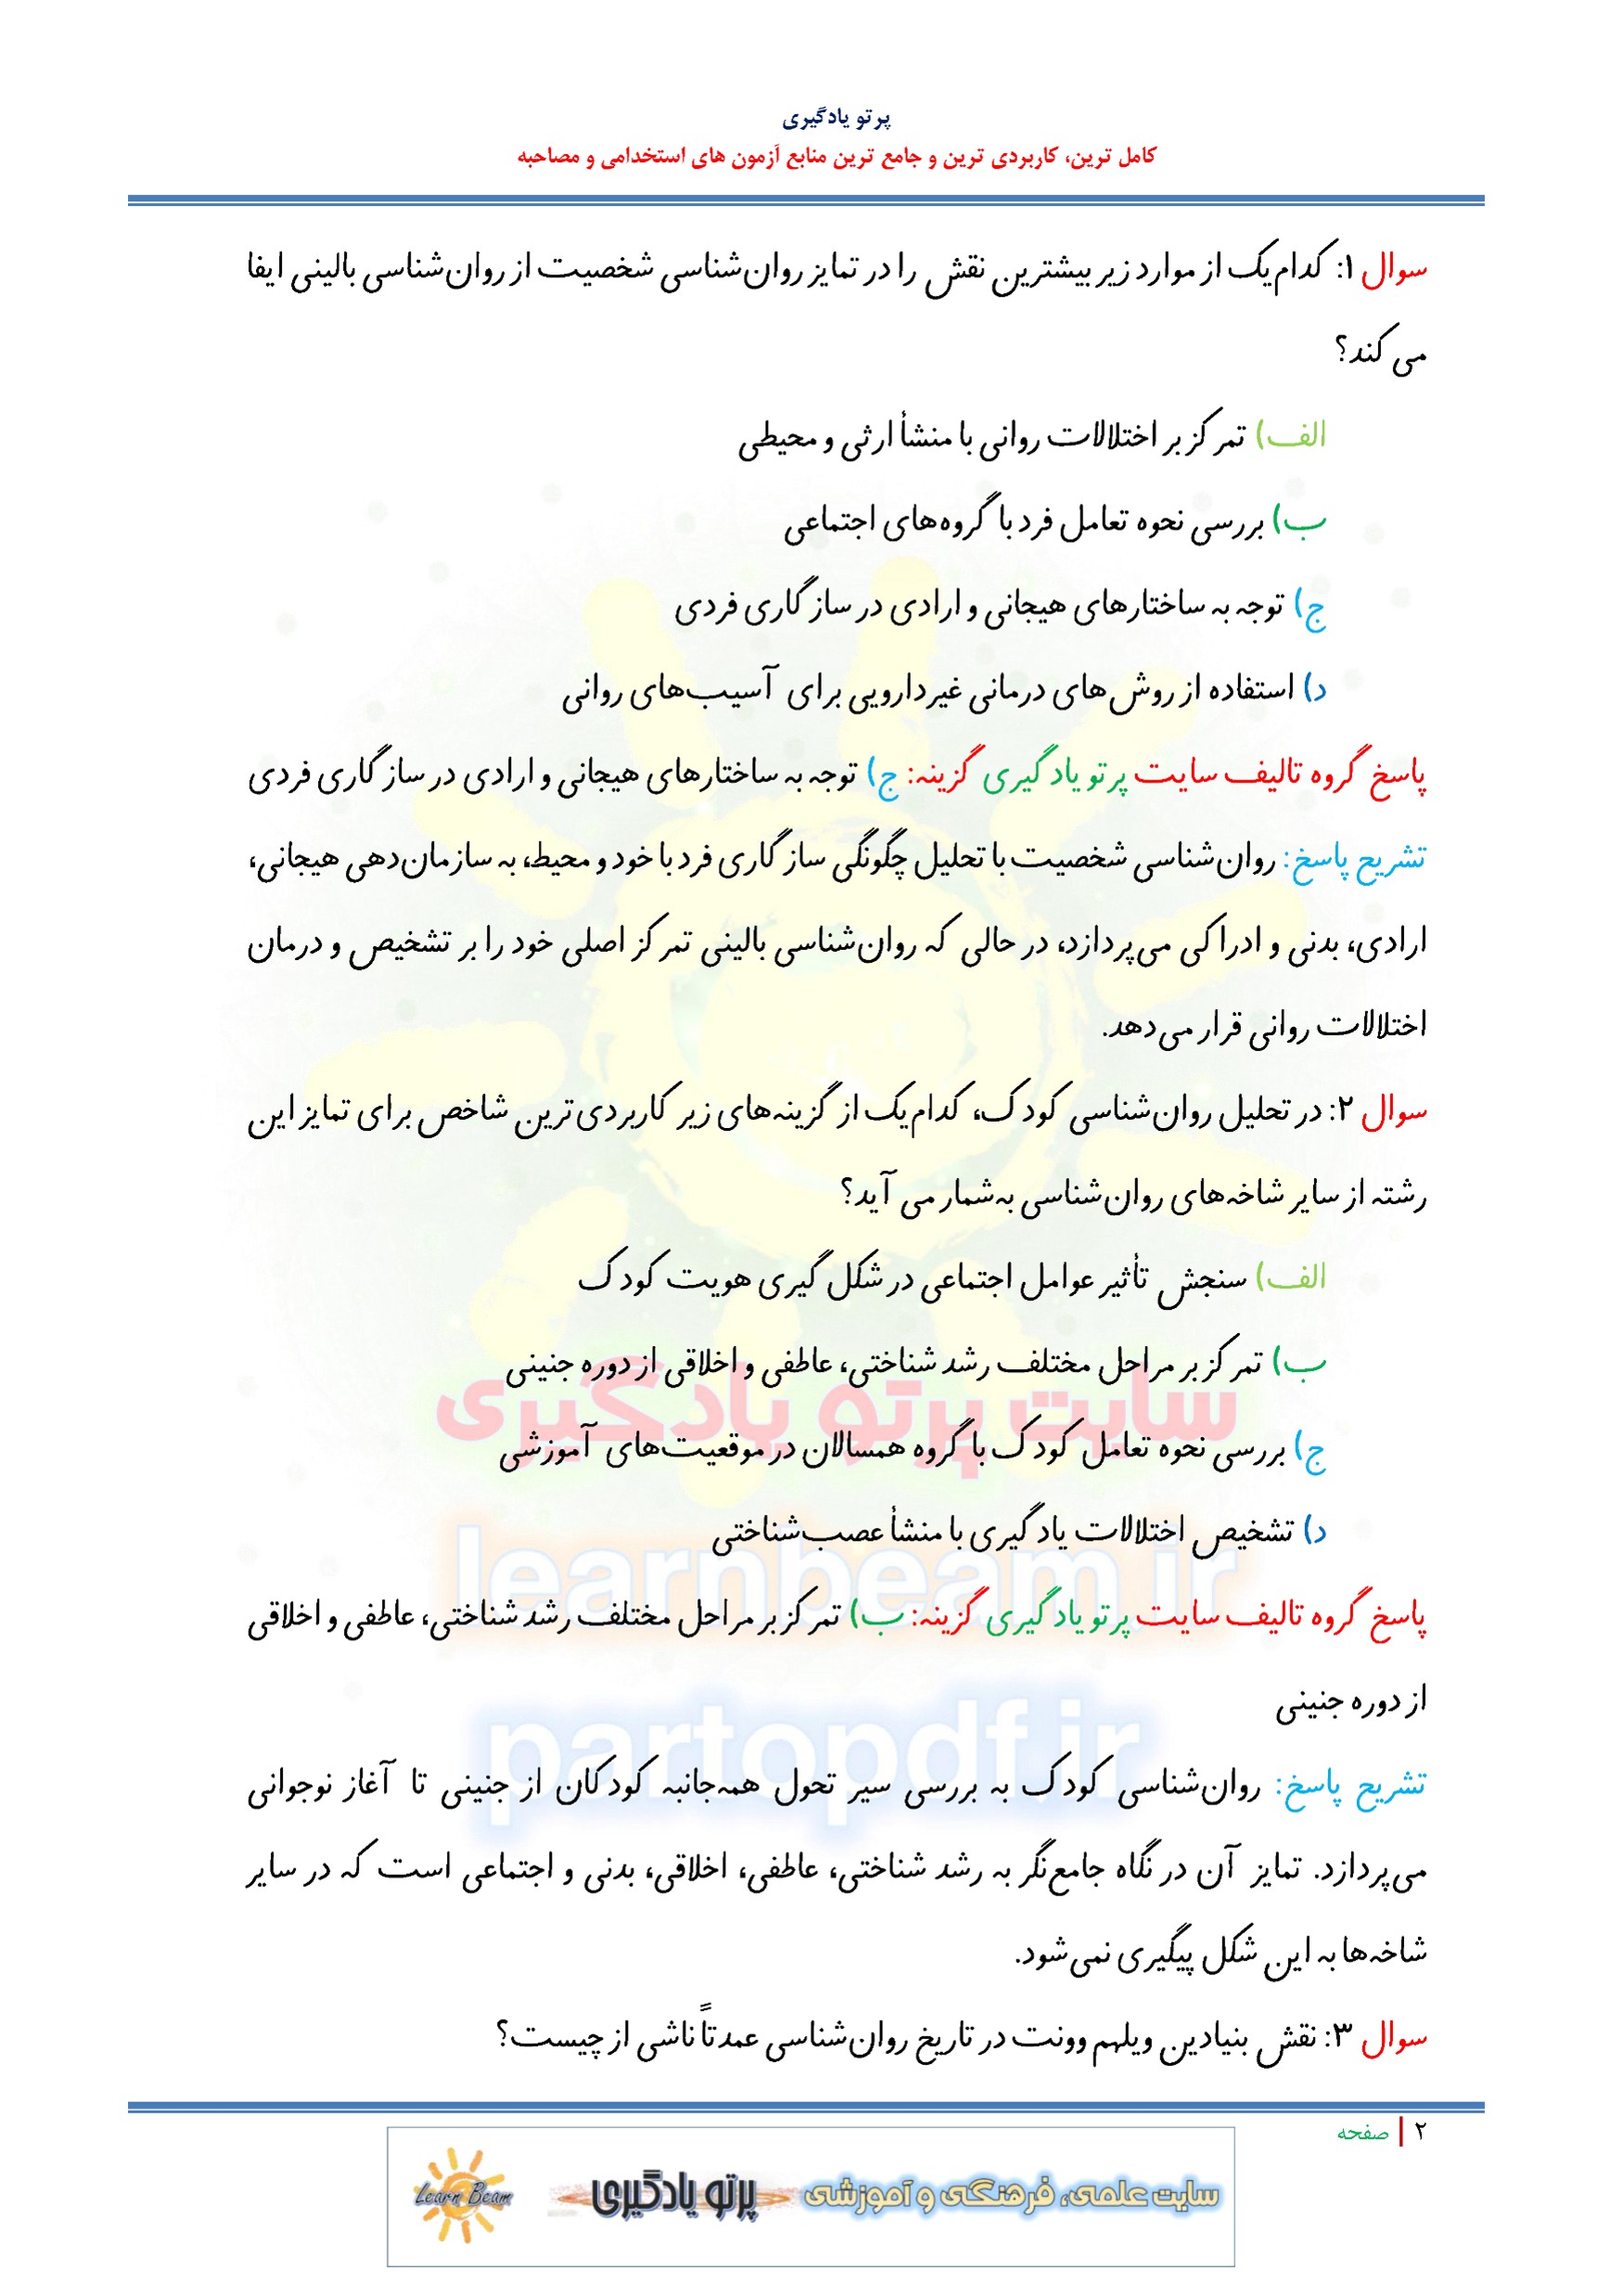 پرتو یادگیری
کامل ترین، کاربردی ترین و جامع ترین منابع آزمون های استخدامی و مصاحبه
سوال ۱: کدام‌یک از موارد زیر بیشترین نقش را در تمایز روان‌شناسی شخصیت از روان‌شناسی بالینی ایفا
می کند؟
الف) تمرکز بر اختلالات روانی با منشأ ارثی و محیطی
ب) بررسی نحوه تعامل فرد با گروه‌های اجتماعی
ج) توجه به ساختارهای هیجانی و ارادی در سازگاری فردی
د) استفاده از روش‌های درمانی غیردارویی برای آسیب‌های روانی
پاسخ گروه تالیف سایت پرتو یادگیری گزینه: ج) توجه به ساختارهای هیجانی و ارادی در سازگاری فردی
تشریح پاسخ: روان‌شناسی شخصیت با تحلیل چگونگی سازگاری فرد با خود و محیط، به سازمان‌دهی هیجانی،
ارادی، بدنی و ادراکی می‌پردازد، در حالی که روان‌شناسی بالینی تمرکز اصلی خود را بر تشخیص و درمان
اختلالات روانی قرار می‌دهد.
سوال ۲: در تحلیل روان‌شناسی کودک، کدام‌یک از گزینه‌های زیر کاربردی‌ترین شاخص برای تمایز این
رشته از سایر شاخه‌های روان‌شناسی به‌شمار می آید؟
الف) سنجش تأثیر عوامل اجتماعی در شکل گیری هویت کودک
ب) تمرکز بر مراحل مختلف رشد شناختی، عاطفی و اخلاقی از دوره جنینی
سایت پرتو یادگیری
ج) بررسی نحوه تعامل کودک با گروه همسالان در موقعیت‌های آموزشی
د) تشخیص اختلالات یادگیری با منشأ عصب‌شناختی
learnbeam.ir
پاسخ گروه تالیف سایت پرتو یادگیری گزینه: ب) تمرکز بر مراحل مختلف رشد شناختی، عاطفی و اخلاقی
از دوره جنینی
partopdf.ir
تشریح پاسخ: روان‌شناسی کودک به بررسی سیر تحول همه‌جانبه کودکان از جنینی تا آغاز نوجوانی
می‌پردازد. تمایز آن در نگاه جامع‌نگر به رشد شناختی، عاطفی، اخلاقی، بدنی و اجتماعی است که در سایر
شاخه‌ها به این شکل پیگیری نمی‌شود.
سوال ۳: نقش بنیادین ویلهم وونت در تاریخ روان‌شناسی عمدتاً ناشی از چیست؟
۲ | صفحه
سایت علمی، فرهنگی و آموزشی پرتو یادگیری Learn Beam